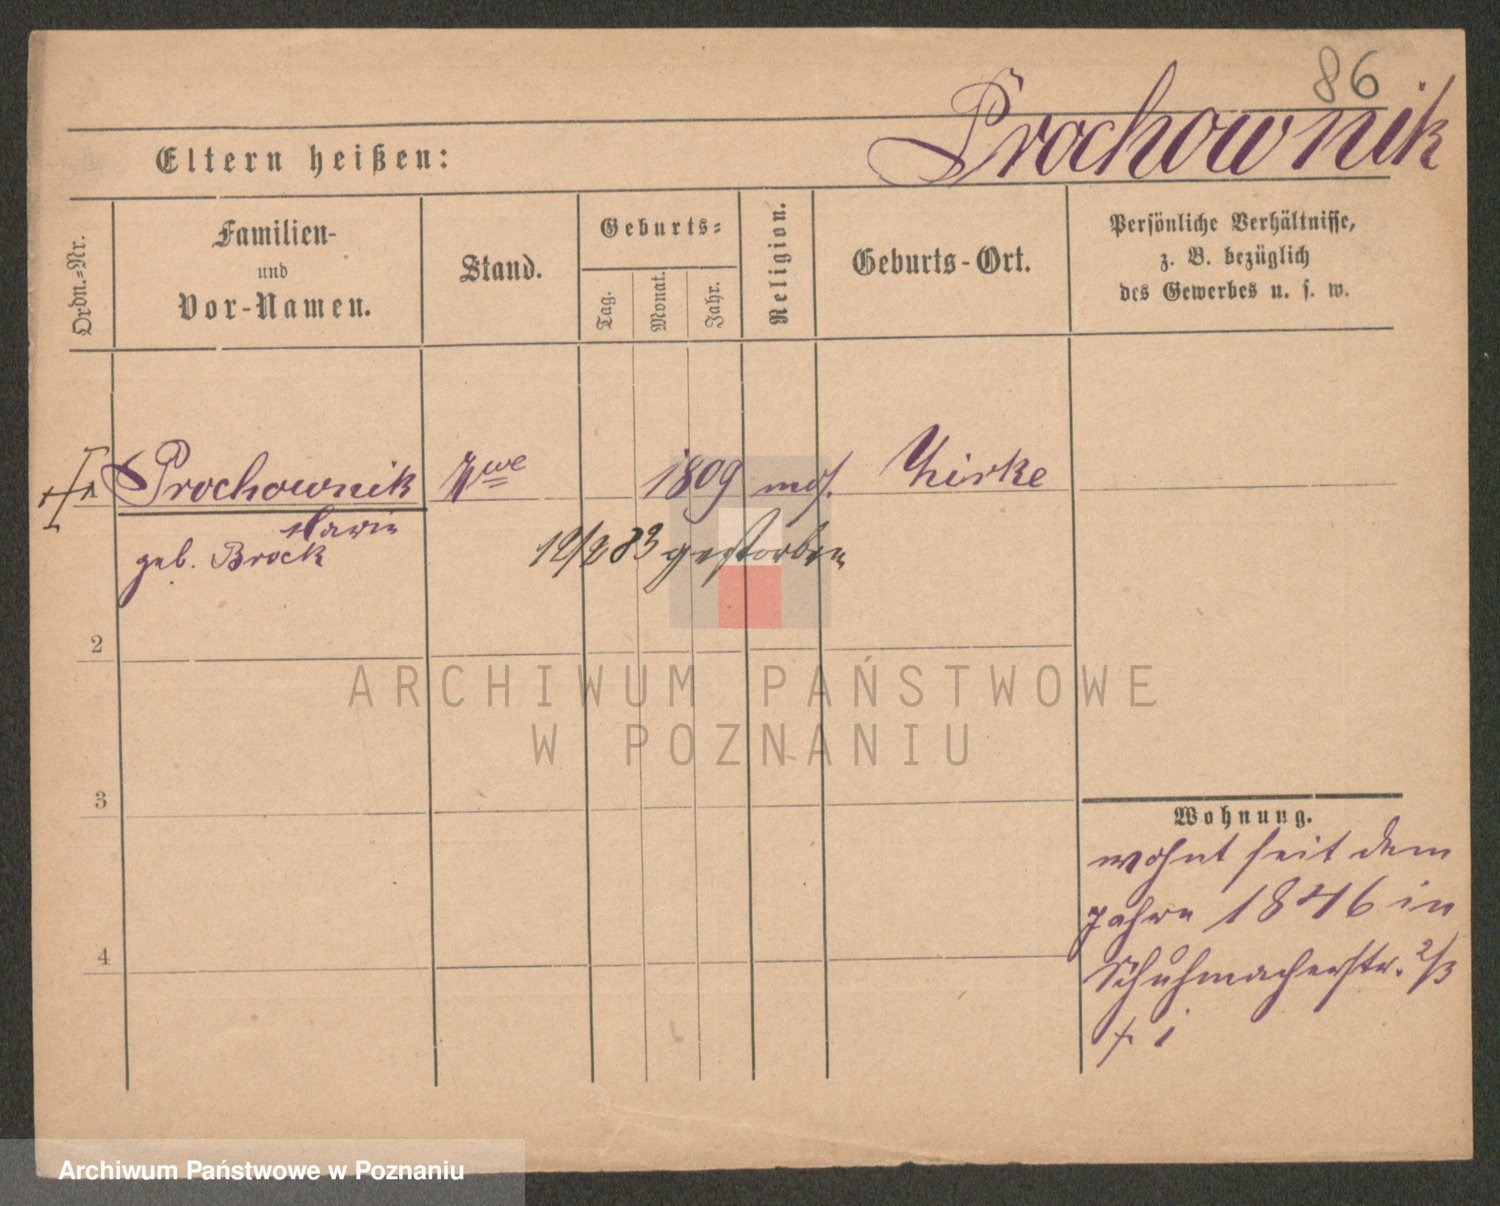 86
Prochownik
Eltern heißen:
Ordn.-Nr.
Familien-
und
Vor-Namen.
Stand.
Geburts-
Tag.
Monat.
Jahr.
Religion.
Geburts-Ort.
Persönliche Verhältnisse,
z. B. bezüglich
des Gewerbes u. s. w.
Prochownik Wwe 1809 mos. Zirke
Marie
geb. Brock
12/2 83 gestorben
2
3
4
Wohnung.
wohnt seit dem
Jahre 1846 in
Schuhmacherstr. 2/3
ARCHIWUM PAŃSTWOWE
W POZNANIU
Archiwum Państwowe w Poznaniu